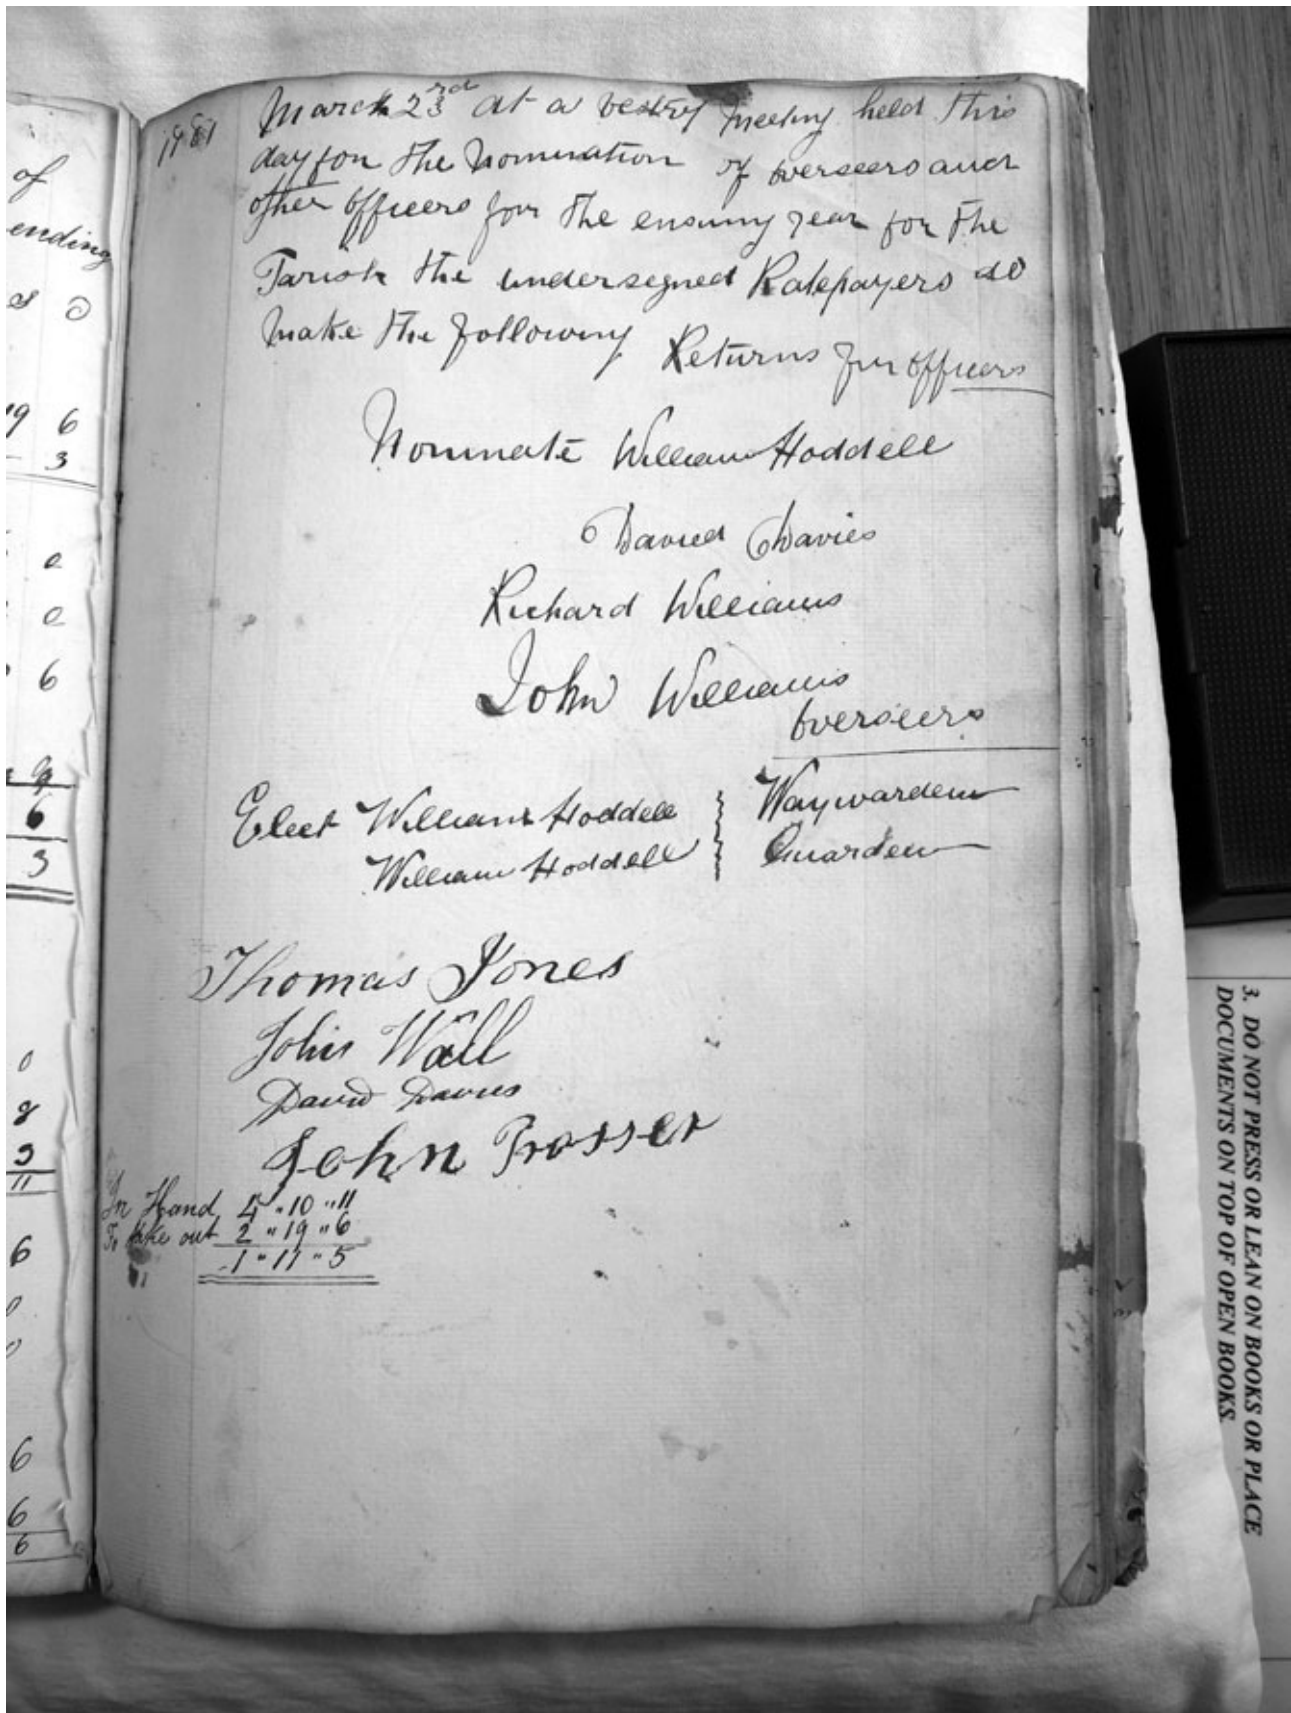 of
ending
s d
19 6
3
0
0
6
9
6
3
0
8
3
11
6
0
0
6
6
6
1881 March 23rd at a vestry meeting held this
day for the Nomination of overseers and
other officers for the ensuing year for the
Parish the undersigned Ratepayers do
make the following Returns for officers
Nominate William Hoddell
David Davies
Richard Williams
John Williams
Overseers
Elect William Hoddell Waywarden
William Hoddell Guardian
Thomas Jones
John Wall
David Davies
John Prosser
In Hand 4 " 10 " 11
To take out 2 " 19 " 6
1 " 11 " 5
3. DO NOT PRESS OR LEAN ON BOOKS OR PLACE
DOCUMENTS ON TOP OF OPEN BOOKS.